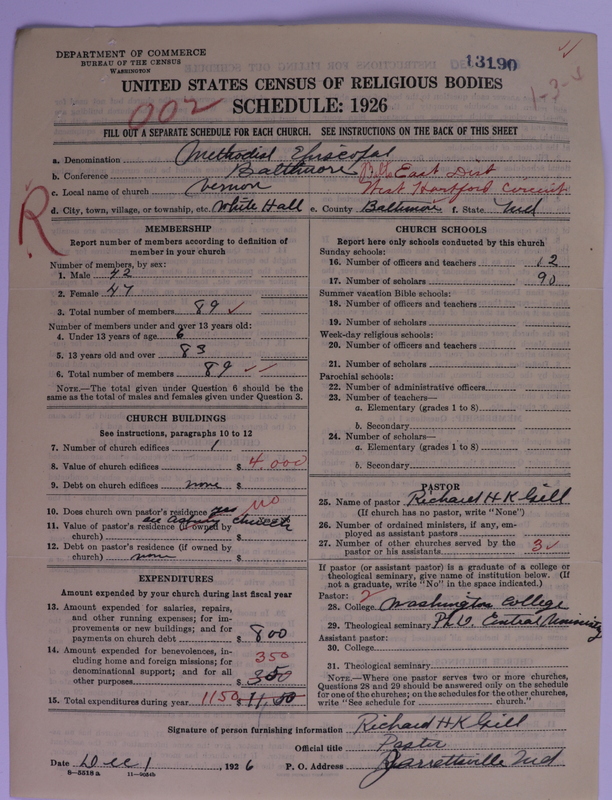 DEPARTMENT OF COMMERCE
BUREAU OF THE CENSUS
WASHINGTON
13190
UNITED STATES CENSUS OF RELIGIOUS BODIES
SCHEDULE: 1926
002
1-3-3
FILL OUT A SEPARATE SCHEDULE FOR EACH CHURCH. SEE INSTRUCTIONS ON THE BACK OF THIS SHEET
a. Denomination Methodist Episcopal
b. Conference Baltimore Balto East Dist
c. Local name of church Vernon West Hartford Circuit
d. City, town, village, or township, etc. White Hall e. County Baltimore f. State Md
R
MEMBERSHIP
Report number of members according to definition of member in your church
Number of members, by sex:
1. Male 42
2. Female 47
3. Total number of members 89 ✓
Number of members under and over 13 years old:
4. Under 13 years of age 6
5. 13 years old and over 83
6. Total number of members 89 ✓✓
NOTE.—The total given under Question 6 should be the same as the total of males and females given under Question 3.
CHURCH BUILDINGS
See instructions, paragraphs 10 to 12
7. Number of church edifices 1
8. Value of church edifices $ 4,000
9. Debt on church edifices none $
10. Does church own pastor's residence yes no
see Asbury church
11. Value of pastor's residence (if owned by church) $
12. Debt on pastor's residence (if owned by church) none $
EXPENDITURES
Amount expended by your church during last fiscal year
13. Amount expended for salaries, repairs, and other running expenses; for improvements or new buildings; and for payments on church debt $ 800
14. Amount expended for benevolences, including home and foreign missions; for denominational support; and for all other purposes $ 350 350
15. Total expenditures during year 1150 $ 11,50
CHURCH SCHOOLS
Report here only schools conducted by this church
Sunday schools:
16. Number of officers and teachers 12
17. Number of scholars 90
Summer vacation Bible schools:
18. Number of officers and teachers
19. Number of scholars
Week-day religious schools:
20. Number of officers and teachers
21. Number of scholars
Parochial schools:
22. Number of administrative officers
23. Number of teachers—
a. Elementary (grades 1 to 8)
b. Secondary
24. Number of scholars—
a. Elementary (grades 1 to 8)
b. Secondary
PASTOR
25. Name of pastor Richard H K Gill
(If church has no pastor, write "None")
26. Number of ordained ministers, if any, employed as assistant pastors
27. Number of other churches served by the pastor or his assistants 3 ✓
If pastor (or assistant pastor) is a graduate of a college or theological seminary, give name of institution below. (If not a graduate, write "No" in the space indicated.)
Pastor: 2
28. College Washington College
29. Theological seminary Ph.D. Central University
Assistant pastor:
30. College
31. Theological seminary
NOTE.—Where one pastor serves two or more churches, Questions 28 and 29 should be answered only on the schedule for one of the churches; on the schedules for the other churches, write "See schedule for ............ church."
Signature of person furnishing information Richard H K Gill
Official title Pastor
Date Dec 1, 1926 P. O. Address Jarrettsville Md
8—5518 a 11—9034b